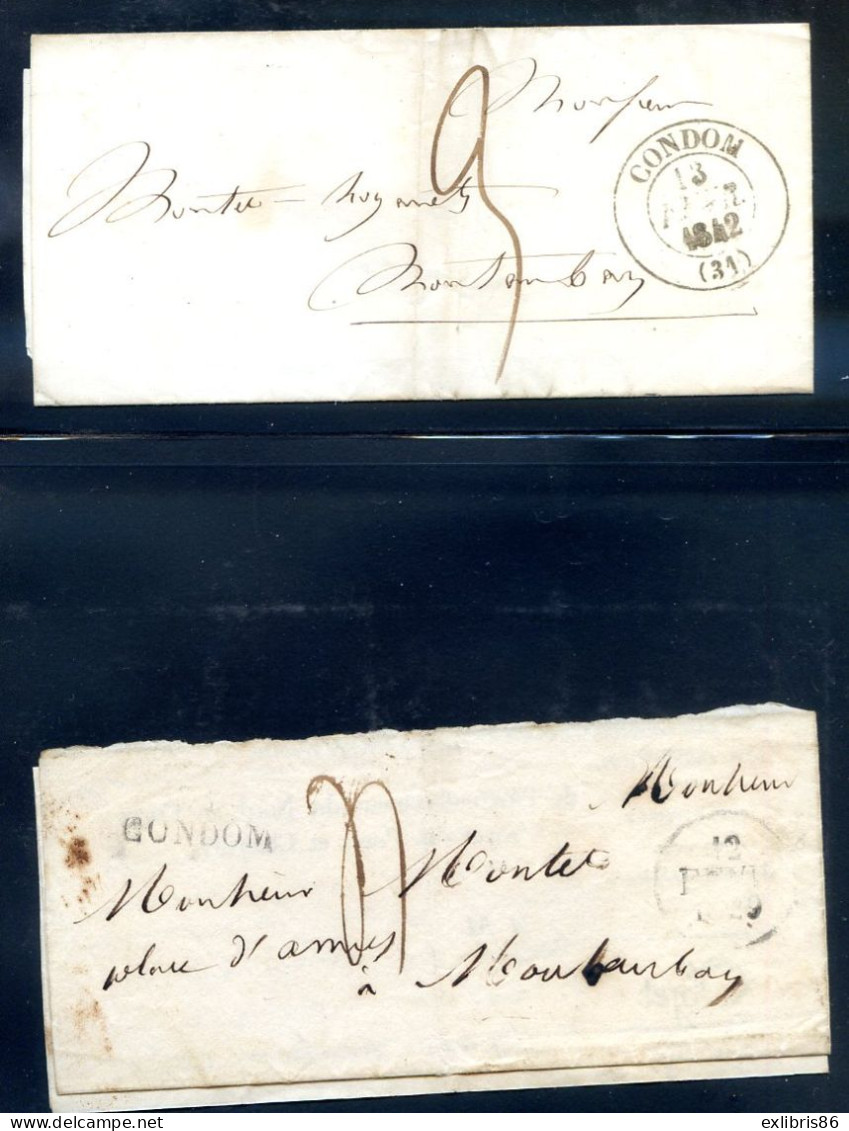 Monsieur
CONDOM
13
FEVR
1842
(31)
Montet
Montauban
Monsieur
CONDOM
12
FEVR
Monsieur Montet
place d'armes
à Montauban
exlibris86